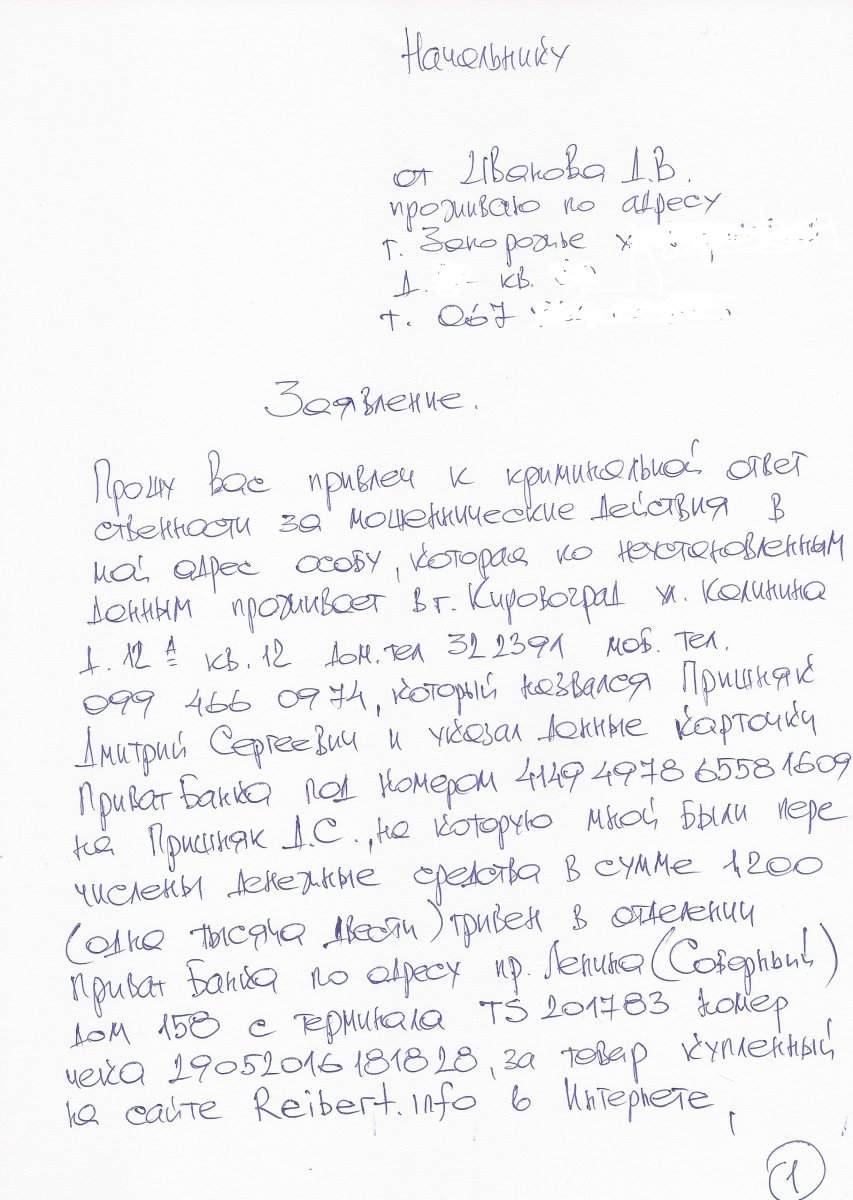 Начальнику
от Иванова Д.В.
проживаю по адресу
г. Запорожье у
д. кв.
т. 067
Заявление.
Прошу Вас привлеч к криминальной ответ
ственности за мошеннические действия в
мой адрес особу, которая по неустановленным
данным проживает в г. Кировоград ул. Калинина
д. 12 А кв. 12 дом. тел 322391 моб. тел.
099 466 0974, который назвался Пришняк
Дмитрий Сергеевич и указал данные карточки
ПриватБанка под номером 4149 4978 6558 1609
на Пришняк Д.С., на которую мной были пере
числены денежные средства в сумме 1200
(одна тысяча двести) гривен в отделении
Приват Банка по адресу пр. Ленина (Соборный)
дом 158 с терминала TS 201783 номер
чека 29052016181828, за товар купленный
на сайте Reibert.info в Интернете,
1